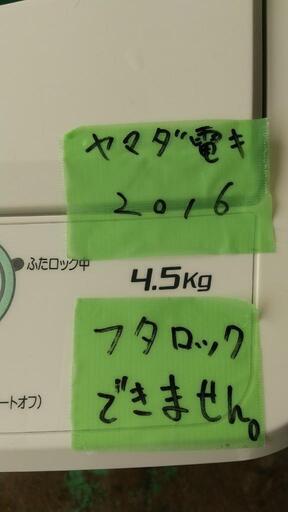 ヤマダ電キ
2016
ふたロック中
4.5Kg
フタロック
できません。
ートオフ)